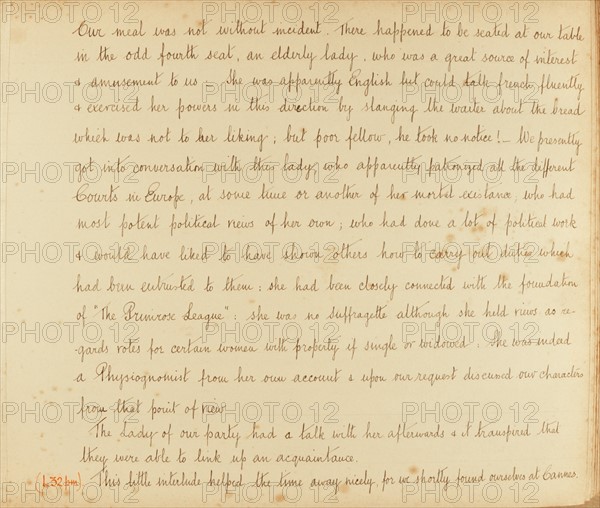 Our meal was not without incident. There happened to be seated at our table
in the odd fourth seat, an elderly lady, who was a great source of interest
& amusement to us — She was apparently English but could talk french fluently
& exercised her powers in this direction by slanging the waiter about the bread
which was not to her liking; but poor fellow, he took no notice! — We presently
got into conversation with this lady, who apparently patronized all the different
Courts in Europe, at some time or another of her mortal existance, who had
most potent political views of her own; who had done a lot of political work
& would have liked to have shown others how to carry out duties which
had been entrusted to them: she had been closely connected with the foundation
of "The Primrose League": she was no suffragette although she held views as re-
gards votes for certain women with property if single or widowed. She was indeed
a Physiognomist from her own account & upon our request discussed our characters
from that point of view
The Lady of our party had a talk with her afterwards & it transpired that
they were able to link up an acquaintance.
(4.32 pm) This little interlude helped the time away nicely, for we shortly found ourselves at Cannes.
PHOTO 12